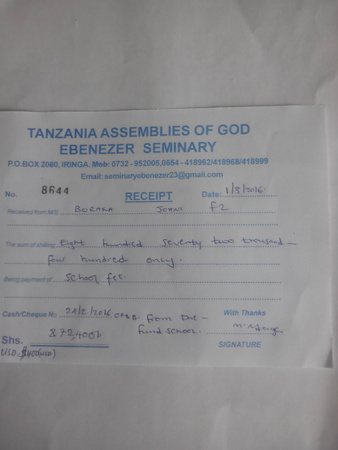 TANZANIA ASSEMBLIES OF GOD
EBENEZER SEMINARY
P.O.BOX 2080, IRINGA. Mob: 0732 - 952005,0554 - 418962/418968/418999
Email: seminaryebenezer23@gmail.com
No. 8644 RECEIPT Date: 1/3/2016
Received from M/S John F2
The sum of shilling eight hundred seventy two thousand
four hundred only.
Being payment of School fee
Cash/Cheque No 29/2/2016 from the With Thanks
fund school.
Shs. 872400/= SIGNATURE
USD